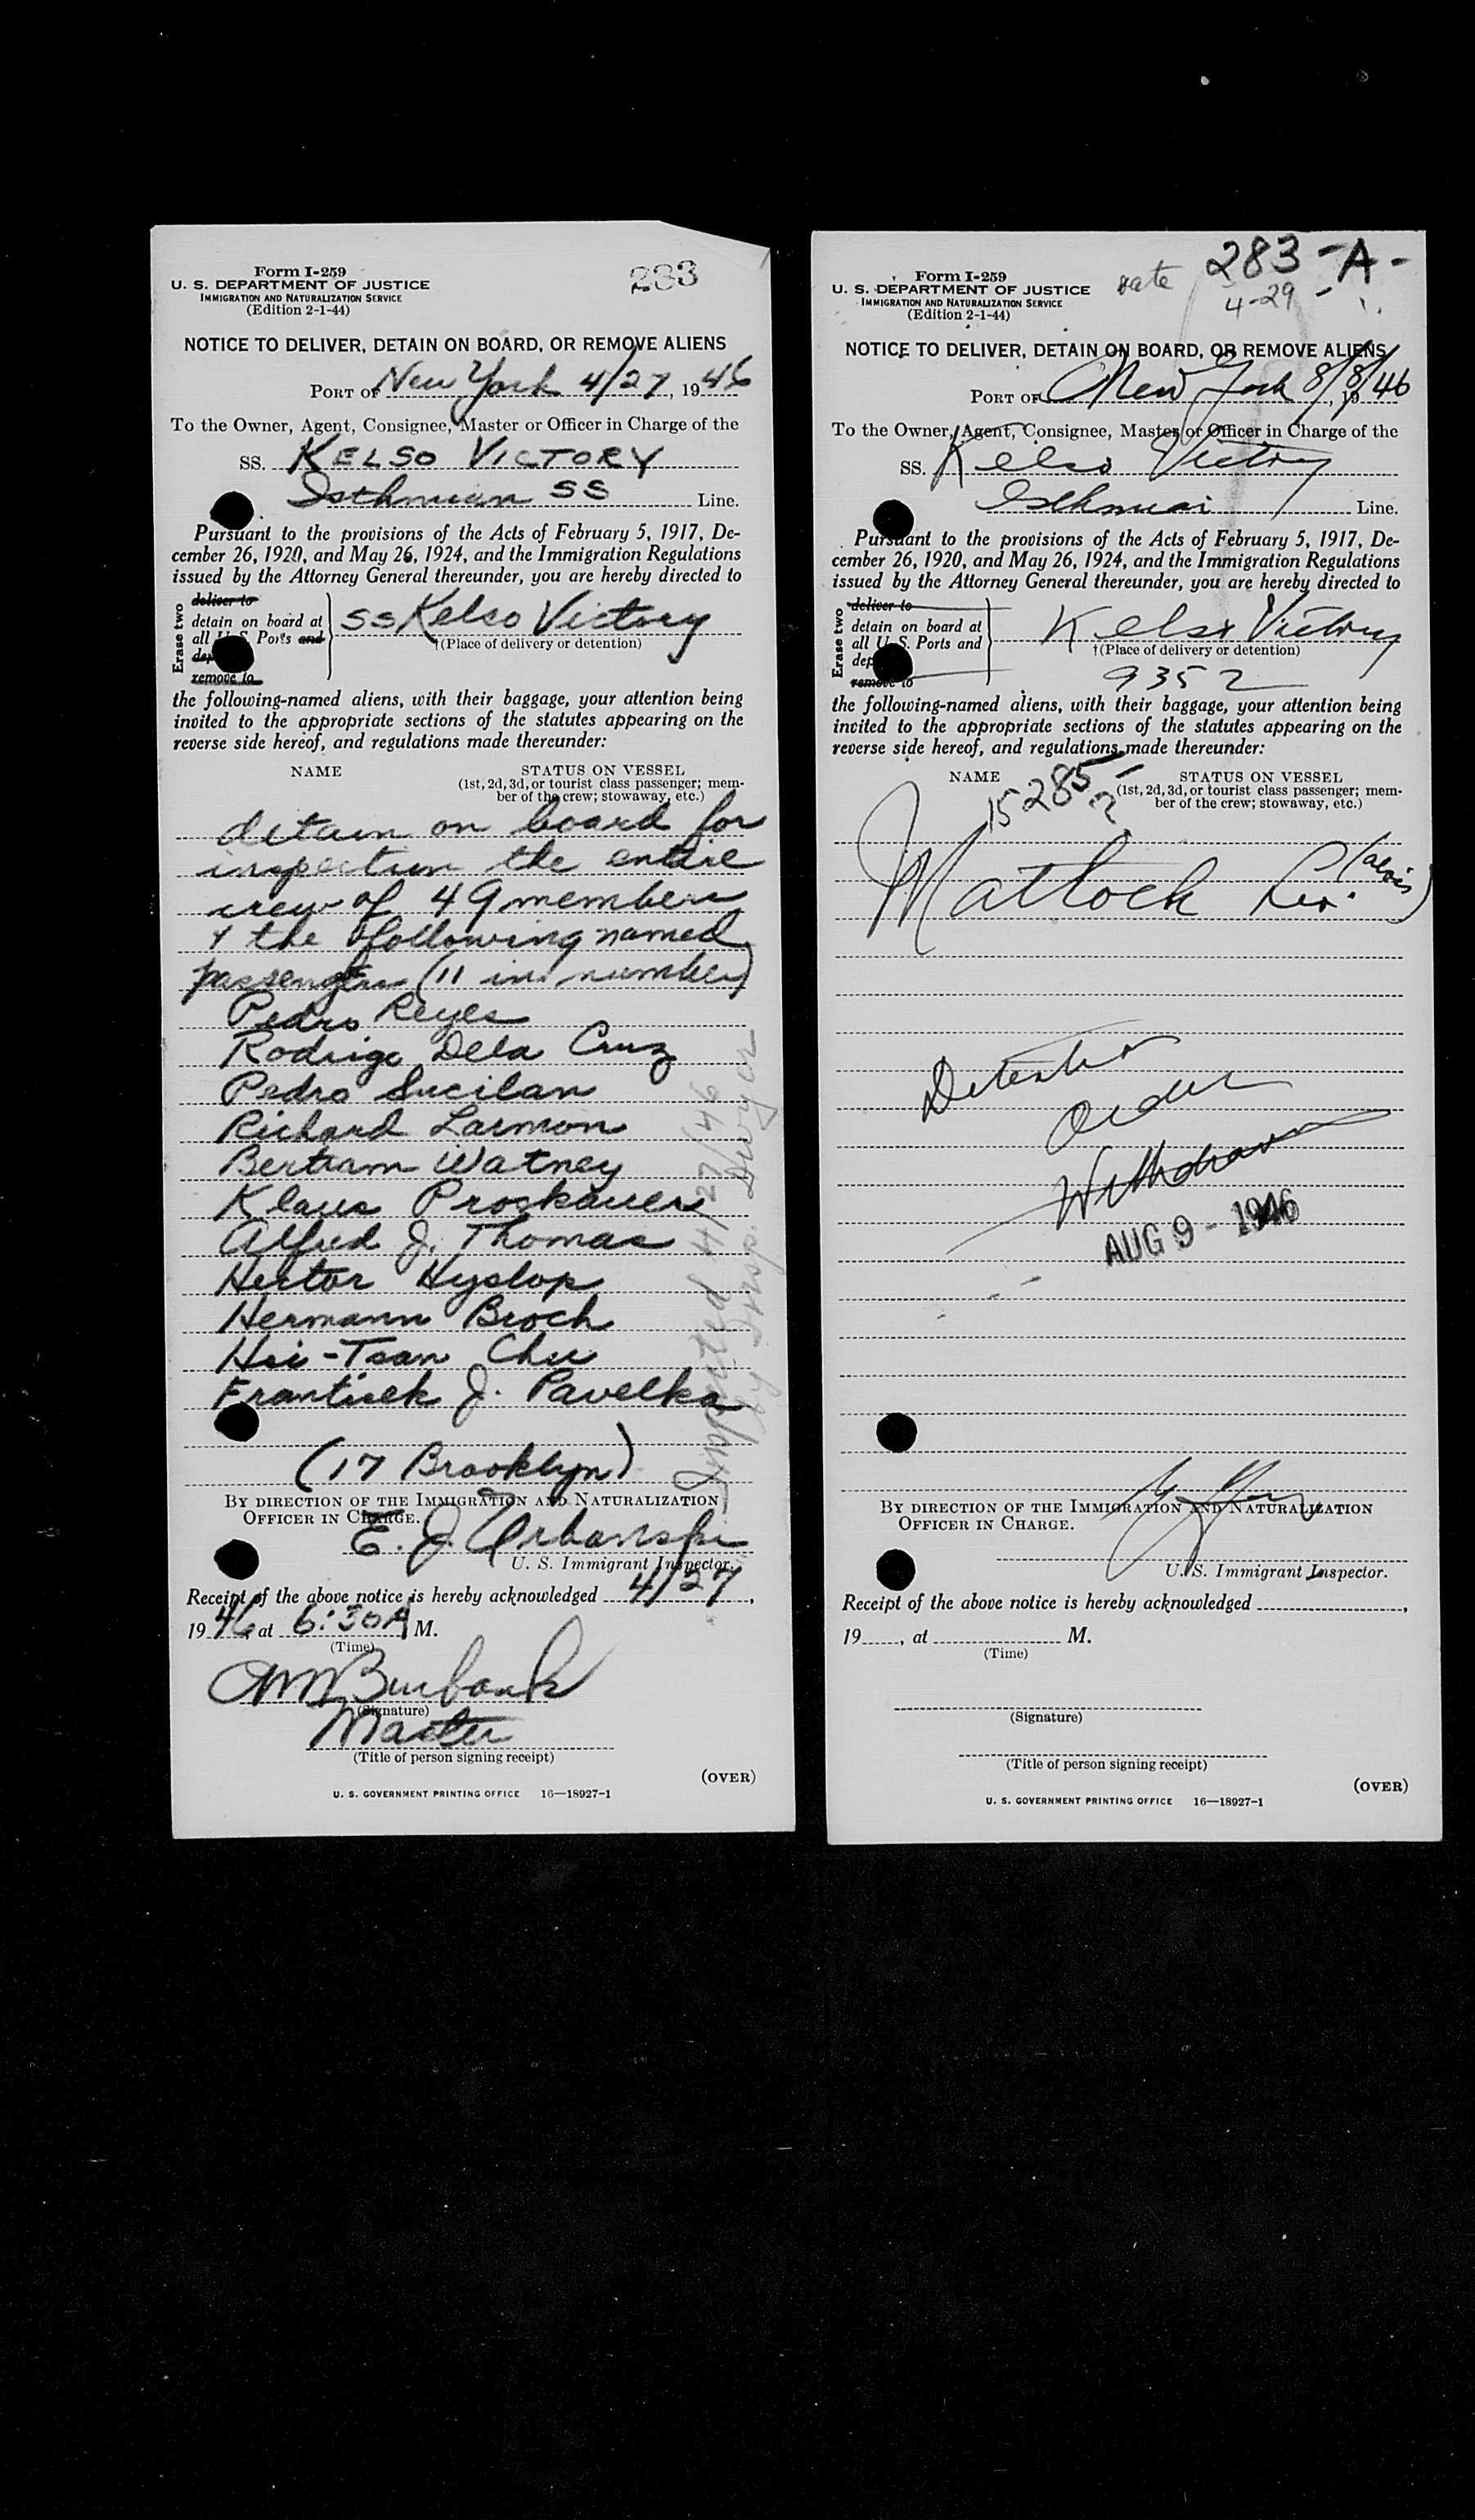 Form I-259
U. S. DEPARTMENT OF JUSTICE
IMMIGRATION AND NATURALIZATION SERVICE
(Edition 2-1-44)
283
NOTICE TO DELIVER, DETAIN ON BOARD, OR REMOVE ALIENS
PORT OF New York 4/27, 1946
To the Owner, Agent, Consignee, Master or Officer in Charge of the
SS. KELSO VICTORY
Isthmian SS Line.
Pursuant to the provisions of the Acts of February 5, 1917, De-
cember 26, 1920, and May 26, 1924, and the Immigration Regulations
issued by the Attorney General thereunder, you are hereby directed to
Erase two
deliver to
detain on board at
all U.S. Ports and
remove to
SS Kelso Victory
†(Place of delivery or detention)
the following-named aliens, with their baggage, your attention being
invited to the appropriate sections of the statutes appearing on the
reverse side hereof, and regulations made thereunder:
NAME STATUS ON VESSEL
(1st, 2d, 3d, or tourist class passenger; mem-
ber of the crew; stowaway, etc.)
detain on board for
inspection the entire
crew of 49 members
& the following named
passengers (11 in number)
Pedro Reyes
Rodrigo Dela Cruz
Pedro Sucilan
Richard Larmon
Bertram Watney
Klaus Proskauer
Alfred J. Thomas
Hector Hyslop
Hermann Broch
Hsi-Tsan Chu
Frantisek J. Pavelka
(17 Brooklyn)
Inspected 4/27/46
by Insp. Dwyer
BY DIRECTION OF THE IMMIGRATION AND NATURALIZATION
OFFICER IN CHARGE.
E. J. Urbanski
U. S. Immigrant Inspector.
Receipt of the above notice is hereby acknowledged 4/27,
1946 at 6:30 A M.
(Time)
Burbank
(Signature)
Master
(Title of person signing receipt)
(OVER)
U. S. GOVERNMENT PRINTING OFFICE 16—18927-1
Form I-259
U. S. DEPARTMENT OF JUSTICE
IMMIGRATION AND NATURALIZATION SERVICE
(Edition 2-1-44)
283-A-
4-29-
NOTICE TO DELIVER, DETAIN ON BOARD, OR REMOVE ALIENS
PORT OF New York 8/8/46, 19
To the Owner, Agent, Consignee, Master or Officer in Charge of the
SS. Kelso Victory
Line.
Pursuant to the provisions of the Acts of February 5, 1917, De-
cember 26, 1920, and May 26, 1924, and the Immigration Regulations
issued by the Attorney General thereunder, you are hereby directed to
Erase two
deliver to
detain on board at
all U.S. Ports and
remove to
Kelso Victory
†(Place of delivery or detention)
9352
the following-named aliens, with their baggage, your attention being
invited to the appropriate sections of the statutes appearing on the
reverse side hereof, and regulations made thereunder:
NAME STATUS ON VESSEL
(1st, 2d, 3d, or tourist class passenger; mem-
ber of the crew; stowaway, etc.)
15285
Matlock
Order
Withdrawn
AUG 9 - 1946
BY DIRECTION OF THE IMMIGRATION AND NATURALIZATION
OFFICER IN CHARGE.
U. S. Immigrant Inspector.
Receipt of the above notice is hereby acknowledged ,
19 , at M.
(Time)
(Signature)
(Title of person signing receipt)
(OVER)
U. S. GOVERNMENT PRINTING OFFICE 16—18927-1